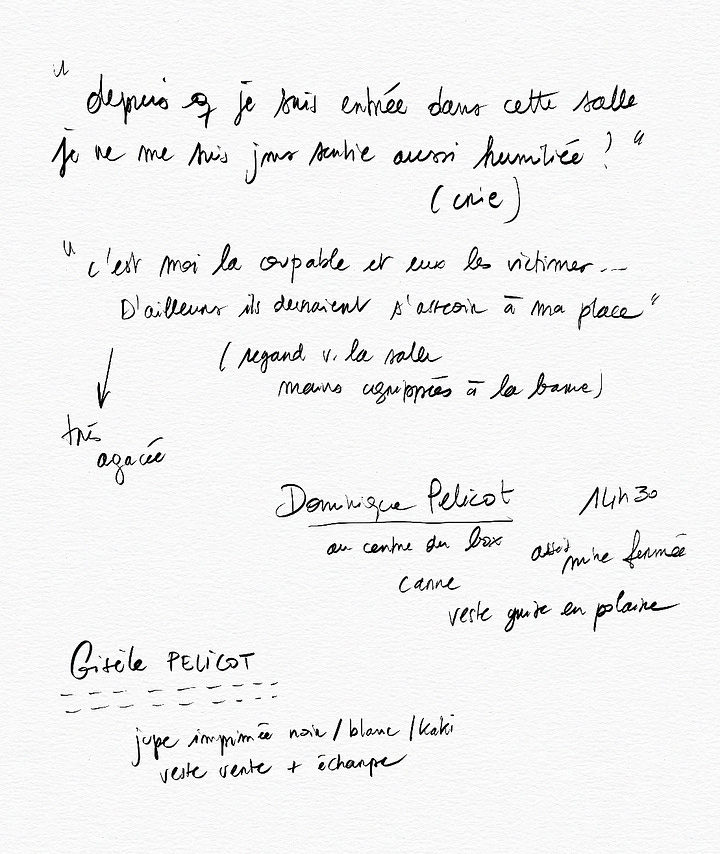 " depuis q je suis entrée dans cette salle
je ne me suis jms sentie aussi humiliée ! "
( crie )
" c'est moi la coupable et eux les victimes ...
D'ailleurs ils devraient s'asseoir à ma place "
( regard v. la salle
mains agrippées à la barre )
très
agacée
Dominique Pelicot 14h30
au centre du box
assis mine fermée
canne
veste grise en polaire
Gisèle PELICOT
jupe imprimée noir / blanc / kaki
veste verte + écharpe